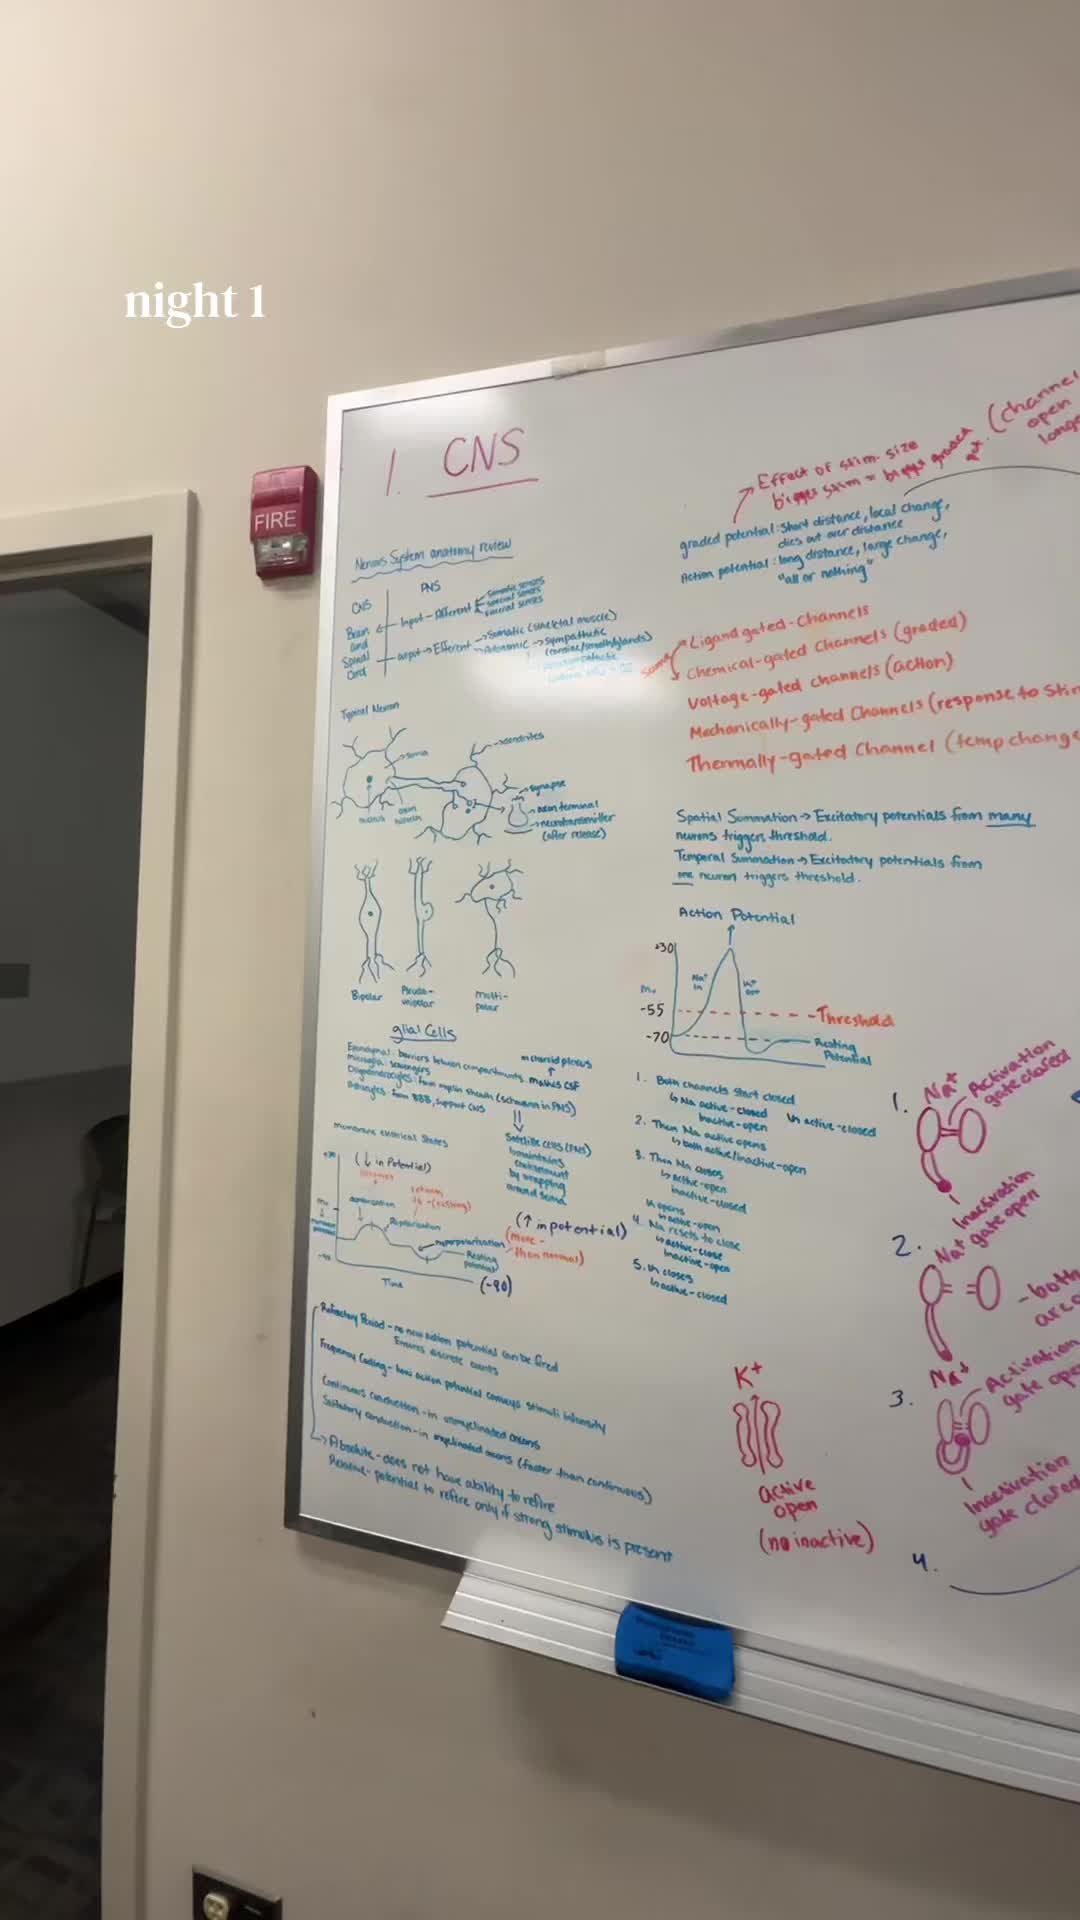 night 1
FIRE
1. CNS
Nervous System anatomy review
CNS
PNS
Brain
and
Spinal
Cord
Input - Afferent
Somatic senses
special senses
visceral senses
output → Efferent
→ Somatic (skeletal muscle)
→ Autonomic → Sympathetic
(cardiac/smooth/glands)
Typical Neuron
soma
dendrites
nucleus
axon
synapse
axon terminal
neurotransmitter
(after release)
Bipolar
Pseudo-
unipolar
multi-
polar
glial cells
Ependymal: barriers between compartments.
in choroid plexus
↑
makes CSF
microglia: scavengers
Oligodendrocytes: form myelin sheath (schwann in PNS)
astrocytes: form BBB, support CNS
Satellite cells (PNS)
maintains
environment
by wrapping
around soma
membrane electrical states
(↓ in Potential)
mv
depolarization
return
(resting)
Repolarization
hyperpolarization
(↑ in potential)
(more -
than normal)
Resting
potential
Time
(-90)
Refractory Period - no new action potential can be fired
Ensures discrete
Frequency Coding - how action potential conveys stimuli intensity
Continuous conduction - in unmyelinated axons
Saltatory conduction - in myelinated axons (faster than continuous)
→ Absolute - does not have ability to refire
Relative - potential to refire only if strong stimulus is present
Effect of stim. size
bigger stim = bigger graded
pot.
(channel
open
longe
graded potential: Short distance, local change,
dies out over distance
Action potential: long distance, large change,
"all or nothing"
same
Ligand gated-Channels
Chemical-gated Channels (graded)
Voltage-gated channels (action)
Mechanically-gated Channels (response to stim
Thermally-gated Channel (temp change
Spatial Summation → Excitatory potentials from many
neurons triggers threshold.
Temporal Summation → Excitatory potentials from
one neuron triggers threshold.
Action Potential
+30
mv
-55
-70
Na+
in
K+
out
Threshold
Resting
Potential
1. Both channels start closed
↳ Na active-closed
Inactive-open
K active-closed
2. Then Na active opens
↳ both active/inactive-open
3. Then Na closes
↳ active-open
Inactive-closed
K opens
↳ active-open
4. Na resets to close
↳ active-close
Inactive-open
5. K closes
↳ active-closed
K+
active
open
(no inactive)
1.
Na+
Activation
gate closed
Inactivation
gate open
2.
Na+
- both
are o
3.
Na+
Activation
gate ope
Inactivation
gate closed
4.